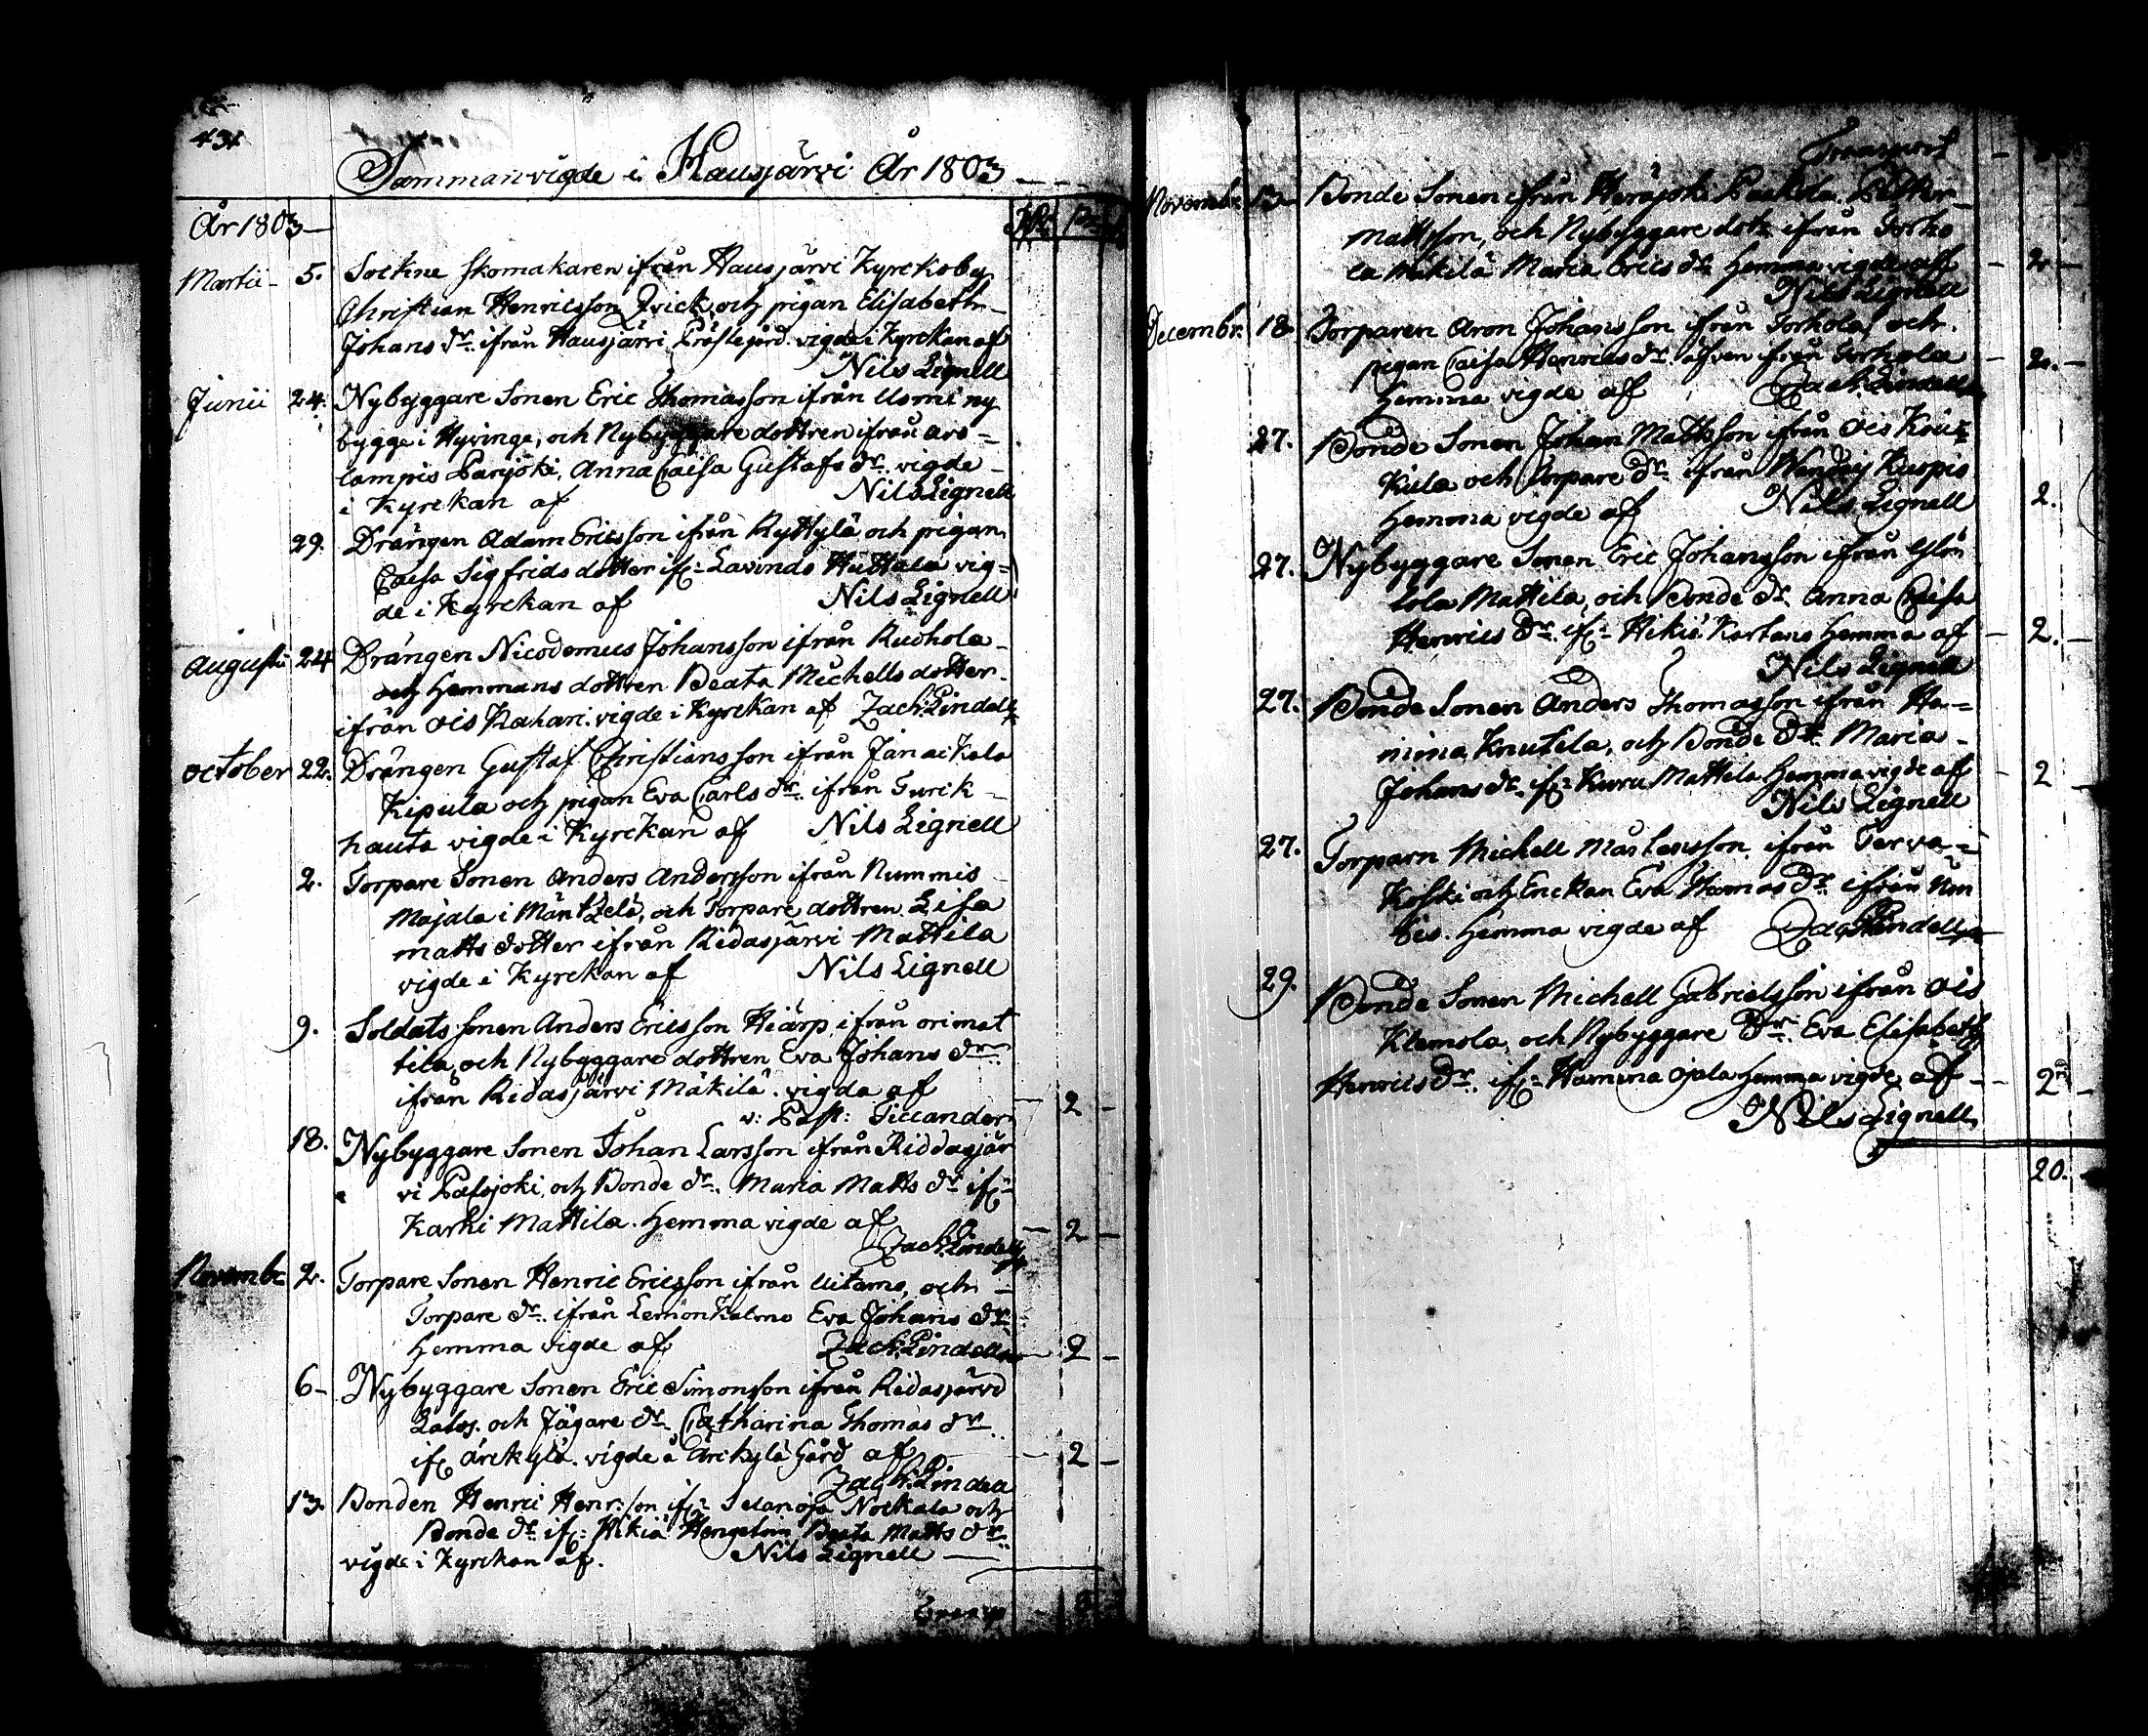 431.
Sammanvigde i Hausjärvi År 1803
År 1803
Martii 5. Sockne skomakaren ifrån Hausjärvi Kyrckoby
Christian Henricsson Qvick, och pigan Elisabeth
Johans dr. ifrån Hausjärvi Prästegård. vigde i Kyrckan af
Nils Lignell
Junii 24. Nybyggare Sonen Eric Thomasson ifrån Usmi ny
bygge i Hyvinge, och Nybyggare dottren ifrån aro=
lampis Parjoki, Anna Caisa Gustafs dr. vigde
i Kyrckan af Nils Lignell
29. Drängen Adam Ericsson ifrån Ryttylä och pigan
Caisa Sigfrids dotter ifr: Lavinds Huttala vig=
de i Kyrckan af Nils Lignell
Augusti 24 Drängen Nicodemus Johansson ifrån Ruohola
och Hemmans dottren Beata Michells dotter
ifrån Ois Rahari. vigde i Kyrckan af Zach. Lindell
October 22. Drängen Gustaf Christiansson ifrån Janackala
Kipula och pigan Eva Carls dr. ifrån Turck
hauta vigde i Kyrckan af Nils Lignell
2. Torpare Sonen Anders Andersson ifrån Nummis
Majala i Mäntzelä, och Torpare dottren Lisa
Matts dotter ifrån Ridasjärvi Mattila
vigde i Kyrckan af Nils Lignell
9. Soldats sonen Anders Ericsson Hiärp, ifrån orimat
tila, och Nybyggare dottren Eva Johans dr.
ifrån Ridasjärvi Mäkilä. vigda af
v: Past: Ticcander 2
18. Nybyggare Sonen Johan Larsson ifrån Riddasjär
vi Palsjoki, och Bonde dr. Maria Matts dr. ifr:
Karhi Mattila. Hemma vigde af 2
Zach. Lindell
Novembr 2. Torpare Sonen Henric Ericsson ifrån Uitamo, och
Torpare dr. ifrån Lemonkalmo Eva Johans dr.
Hemma vigde af Zach. Lindell 2
6 Nybyggare Sonen Eric Simonsson ifrån Ridasjärvi
och Jägare dr. Catharina Thomas dr.
ifr: Ärckylä. vigde å Ärckylä Gård af 2
Zach. Lindell
13. Bonden Henric Henr:son ifr: Selänoja Nockala och
Bonde dr. ifr: Hikiä Beata Matts dr.
vigde i Kyrckan af. Nils Lignell
Transp
Transport
Novembr. 13 Bonde Sonen ifrån Heräjoki Petter
Mattsson, och Nybyggare dotr ifrån Torho
la Mäkilä Maria Erics dr. Hemma vigde af 2
Nils Lignell
Decembr. 18 Torparen Aron Johansson ifrån Torhola, och
pigan Caisa Henrics dr. äfven ifrån Torhola 2.
Hemma vigde af Zach. Lindell
27. Bonde Sonen Johan Mattsson ifrån Ois
Kula och Torpare dr. ifrån
Hemma vigde af Nils Lignell 2.
27. Nybyggare Sonen Eric Johansson ifrån
lola Mattila, och Bonde dr. Anna Caisa
Henrics dr. ifr: Hikiä Kartano Hemma af 2.
Nils Lignell
27. Bonde Sonen Anders Thomasson ifrån Ha=
mina Knutila, och Bonde dr. Maria
Johans dr. ifr: Kuru Mattela Hemma vigde af 2
Nils Lignell
27. Torparn Michell Mårtensson ifrån Terva=
koski och Enckan Eva Thomas dr. ifrån
Hemma vigde af Zach. Lindell
29. Bonde Sonen Michell Gabrielsson ifrån Ois
Klemola, och Nybyggare dr. Eva Elisabeth
Henrics dr. ifr: Hamina Ojala Hemma vigde af 2
Nils Lignell
20.